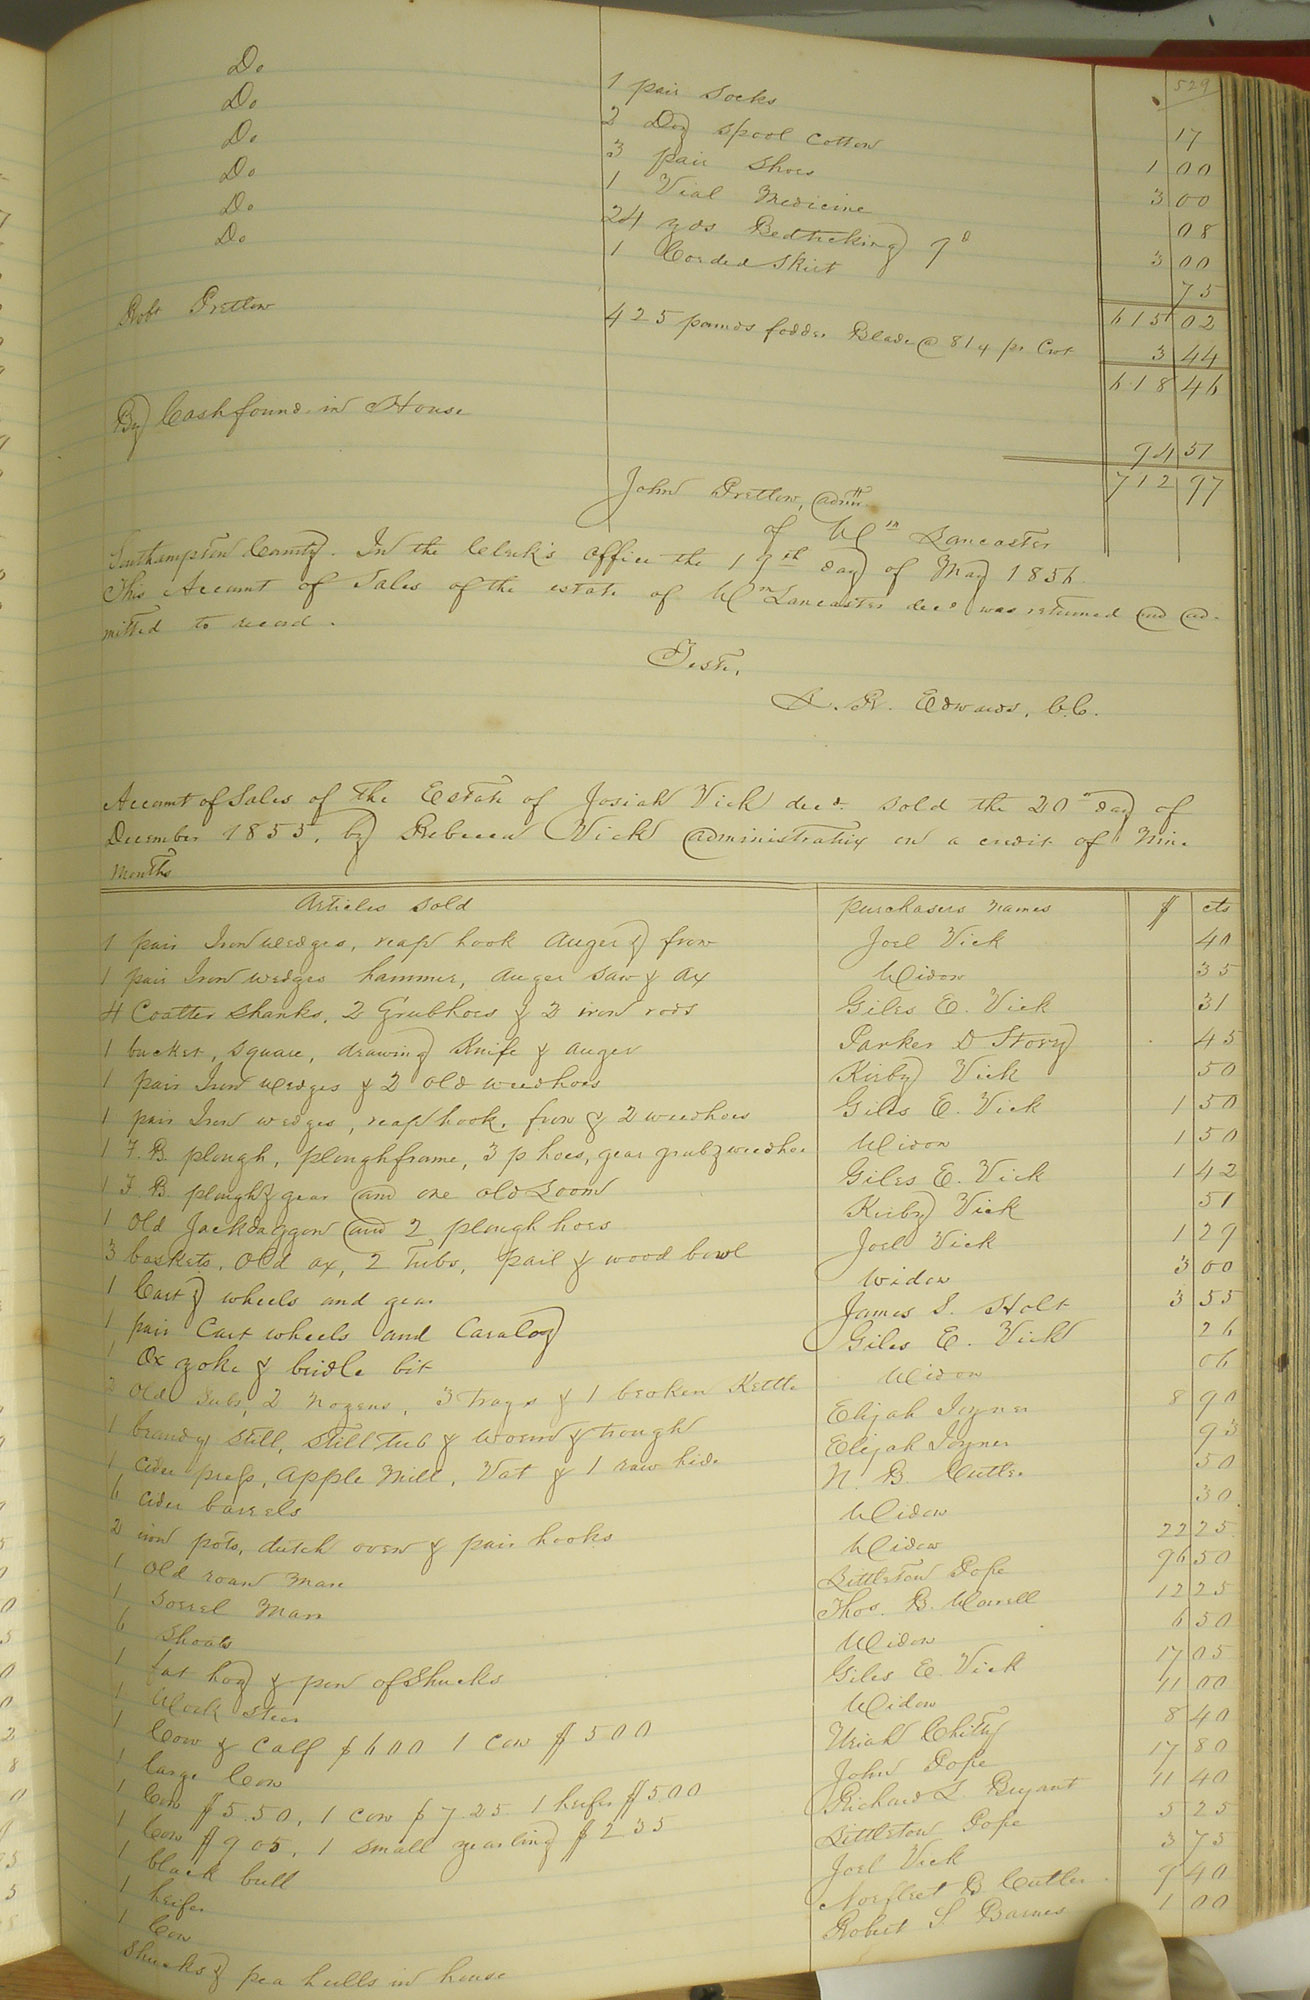 529
Do 1 pair socks 17
Do 2 Doz spool cotton 1 00
Do 3 pair shoes 3 00
Do 1 Vial Medicine 08
Do 24 yds Bedticking 3 00
Do 1 Corded Skirt 75
615 02
Robt Pretlow 425 pounds fodder Blade @ 81¼ pr Cwt 3 44
618 46
By Cash found in House 94 51
712 97
John Pretlow, admr
of Wm Lancaster
Southampton County. In the Clerk's office the 19th day of May 1856
This Account of Sales of the estate of Wm Lancaster decd was returned and ad-
mitted to record.
Teste,
L. R. Edwards, C.C.
Account of Sales of the Estate of Josiah Vick decd. sold the 20th day of
December 1855, by Rebecca Vick administratrix on a credit of Nine
months
Articles sold Purchasers names $ cts
1 pair Iron wedges, reap hook Auger & frow Joel Vick 40
1 pair Iron wedges hammer, auger saw & ax Widow 35
4 Coatter shanks, 2 Grubhoes & 2 iron rods Giles E. Vick 31
1 bucket, square, drawing Knife & auger Parker D Story 45
1 pair Iron wedges & 2 old weedhoes Kirby Vick 50
1 pair Iron wedges, reap hook, frow & 2 weedhoes Giles E. Vick 1 50
1 F. B. plough, ploughframe, 3 p hoes, gear grub & weedhoe Widow 1 50
1 F. B. plough & gear and one old Loom Giles E. Vick 1 42
1 old Jackdaggon and 2 plough hoes Kirby Vick 51
3 baskets, old ax, 2 Tubs, pail & wood bowl Joel Vick 1 29
1 Cart & wheels and gear Widow 3 00
1 pair Cart wheels and Caralog James S. Holt 3 55
1 Ox yoke & bridle bit Giles E. Vick 26
2 old Tubs, 2 nogens, 3 trays & 1 broken Kettle Widow 06
1 brandy still, still Tub & worm & trough Elijah Joyner 8 90
1 cider press, apple mill, Vat & 1 raw hide Elijah Joyner 93
6 cider barrels N. B. Cutler 50
2 iron pots, dutch oven & pair hooks Widow 30
1 old roan Mare Widow 22 25
1 sorrel Mare Littleton Pope 96 50
6 shoats Thos. B. Worrell 12 25
1 fat hog & pen of Shucks Widow 6 50
1 Work steer Giles E. Vick 17 05
1 Cow & Calf $6 00 1 cow $5 00 Widow 11 00
1 large Cow Uriah Chitty 8 40
1 Cow $5.50, 1 cow $7.25 1 heifer $5.00 John Pope 17 80
1 Cow $9 05, 1 small yearling $2 35 Richard L. Bryant 11 40
1 black bull Littleton Pope 5 25
1 heifer Joel Vick 3 75
1 Cow Norfleet B Cutler 9 40
Shucks & pea hulls in house Robert S Barnes 1 00